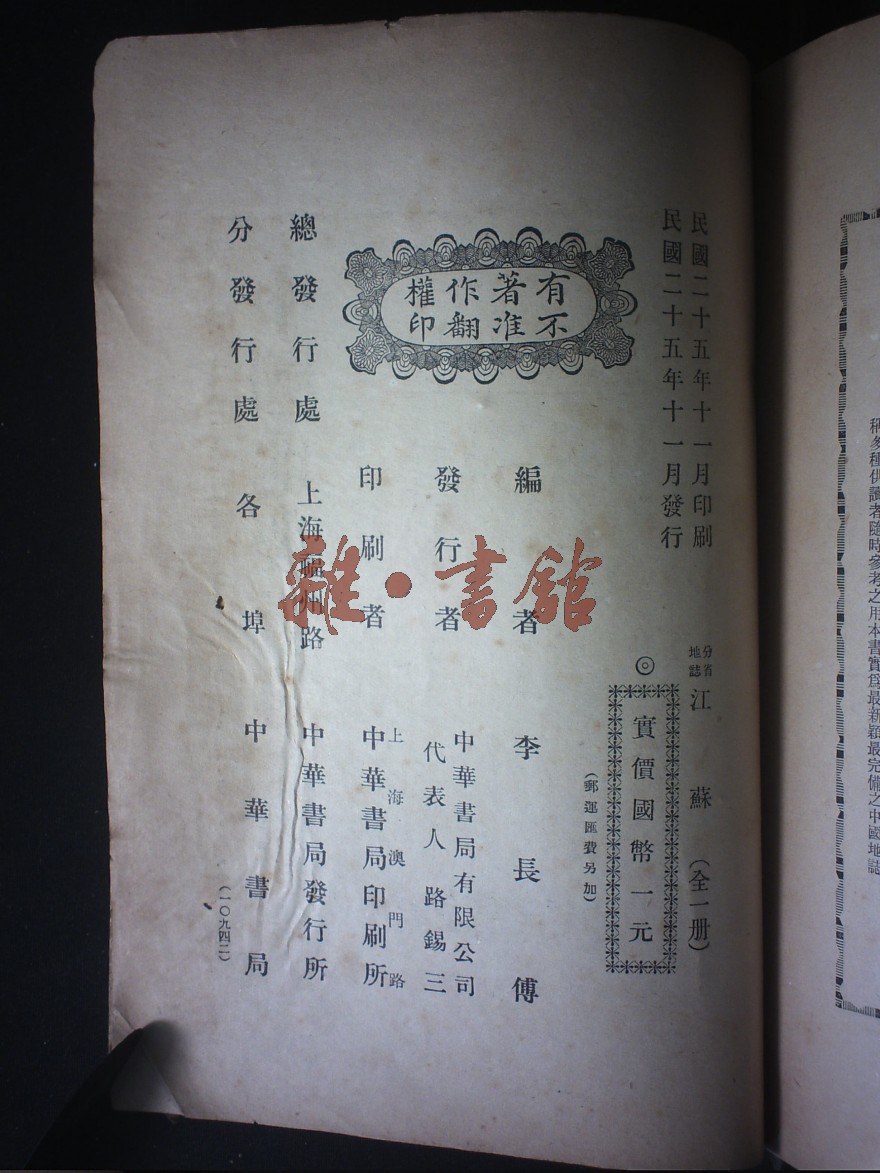 民國二十五年十一月印刷
民國二十五年十一月發行
分省
地誌
江蘇（全一册）
◎
實價國幣一元
（郵運匯費另加）
有著作權
不准翻印
編者 李長傅
發行者 中華書局有限公司
代表人 路錫三
印刷者 上海澳門路
中華書局印刷所
總發行處 上海福州路 中華書局發行所
分發行處 各埠 中華書局
（一〇九四二）
雜·書館
稱多種供讀者隨時參考之用本書實爲最新穎最完備之中國地誌